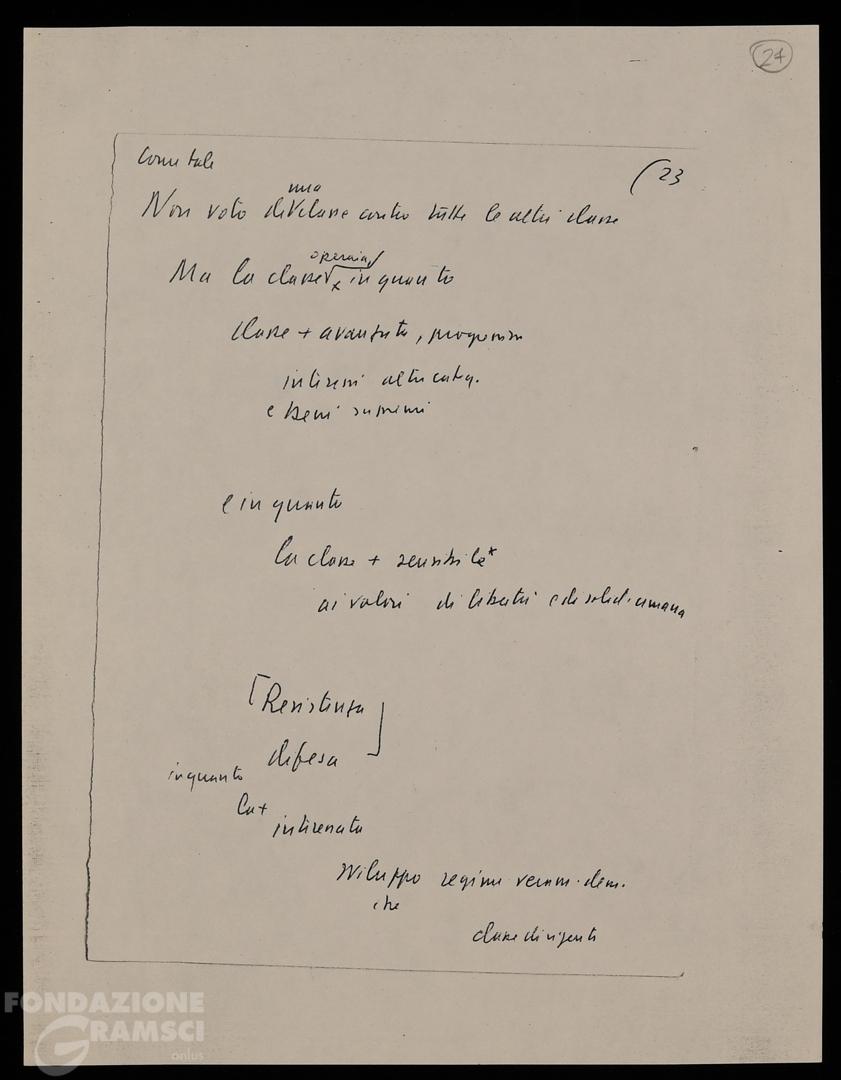 24
(23
Come tale
una
Non voto di classe contro tutte le altre classi
operaia
Ma la classe x in quanto
classe + avanzata, progressiva
interessi altre categ.
e beni supremi
e in quanto
la classe + sensibile*
ai valori di libertà e di solid. umana
[Resistenza
difesa]
in quanto
la +
interessata
sviluppo regime veram. dem.
che
classe dirigente
FONDAZIONE
GRAMSCI
onlus